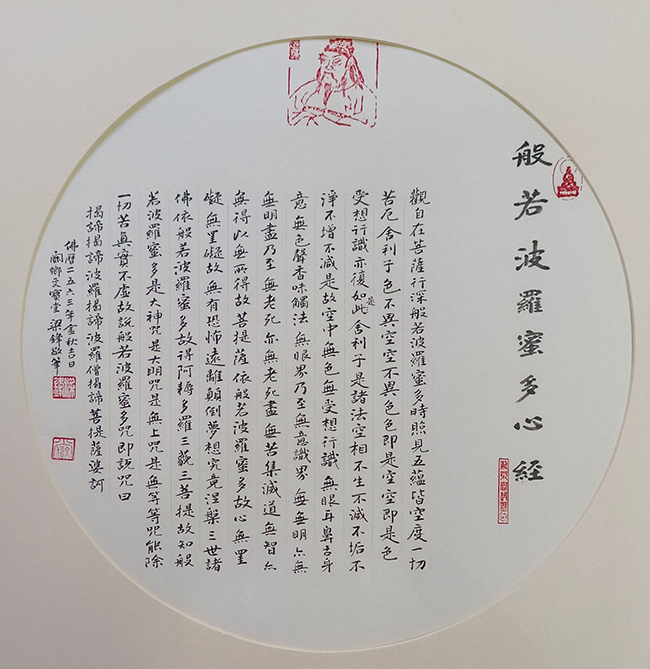 般若波羅蜜多心經
觀自在菩薩行深般若波羅蜜多時照見五蘊皆空度一切
苦厄舍利子色不異空空不異色色即是空空即是色
受想行識亦復如此是舍利子是諸法空相不生不滅不垢不
淨不增不減是故空中無色無受想行識無眼耳鼻舌身
意無色聲香味觸法無眼界乃至無意識界無無明亦無
無明盡乃至無老死亦無老死盡無苦集滅道無智亦
無得以無所得故菩提薩依般若波羅蜜多故心無罣
礙無罣礙故無有恐怖遠離顛倒夢想究竟涅槃三世諸
佛依般若波羅蜜多故得阿耨多羅三藐三菩提故知般
若波羅蜜多是大神咒是大明咒是無上咒是無等等咒能除
一切苦真實不虛故說般若波羅蜜多咒即說咒曰
揭諦揭諦波羅揭諦波羅僧揭諦菩提薩婆訶
佛曆二五六三年金秋吉日
鄉文寶堂梁鋒敬筆